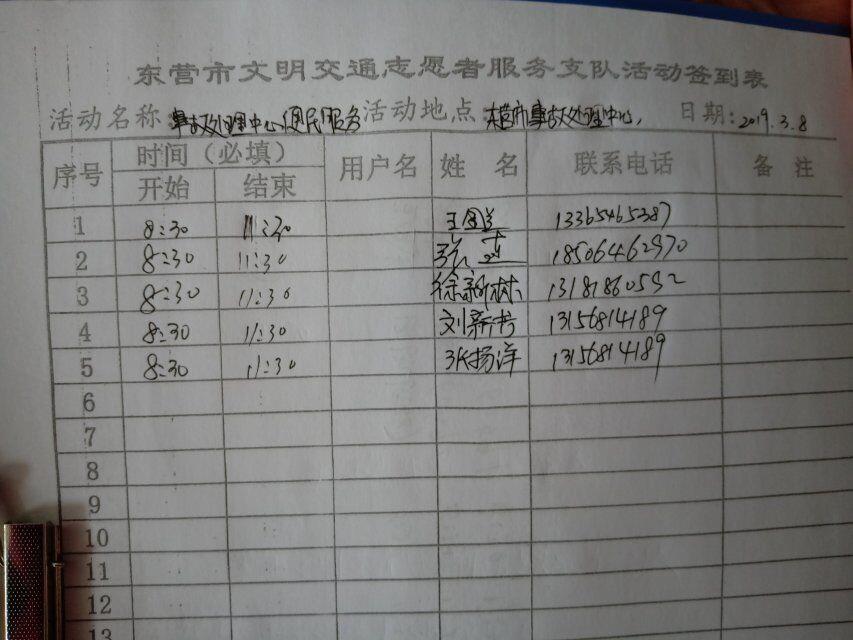 东营市文明交通志愿者服务支队活动签到表
活动名称 事故处理中心便民服务 活动地点 东营市事故处理中心, 日期: 2019.3.8
序号 时间（必填） 用户名 姓 名 联系电话 备 注
开始 结束
1 8:30 11:30 13365465387
2 8:30 11:30 18506462970
3 8:30 11:30 徐新树 13181860592
4 8:30 11:30 刘新书 13156814189
5 8:30 11:30 张扬洋 13156814189
6
7
8
9
10
11
12
13